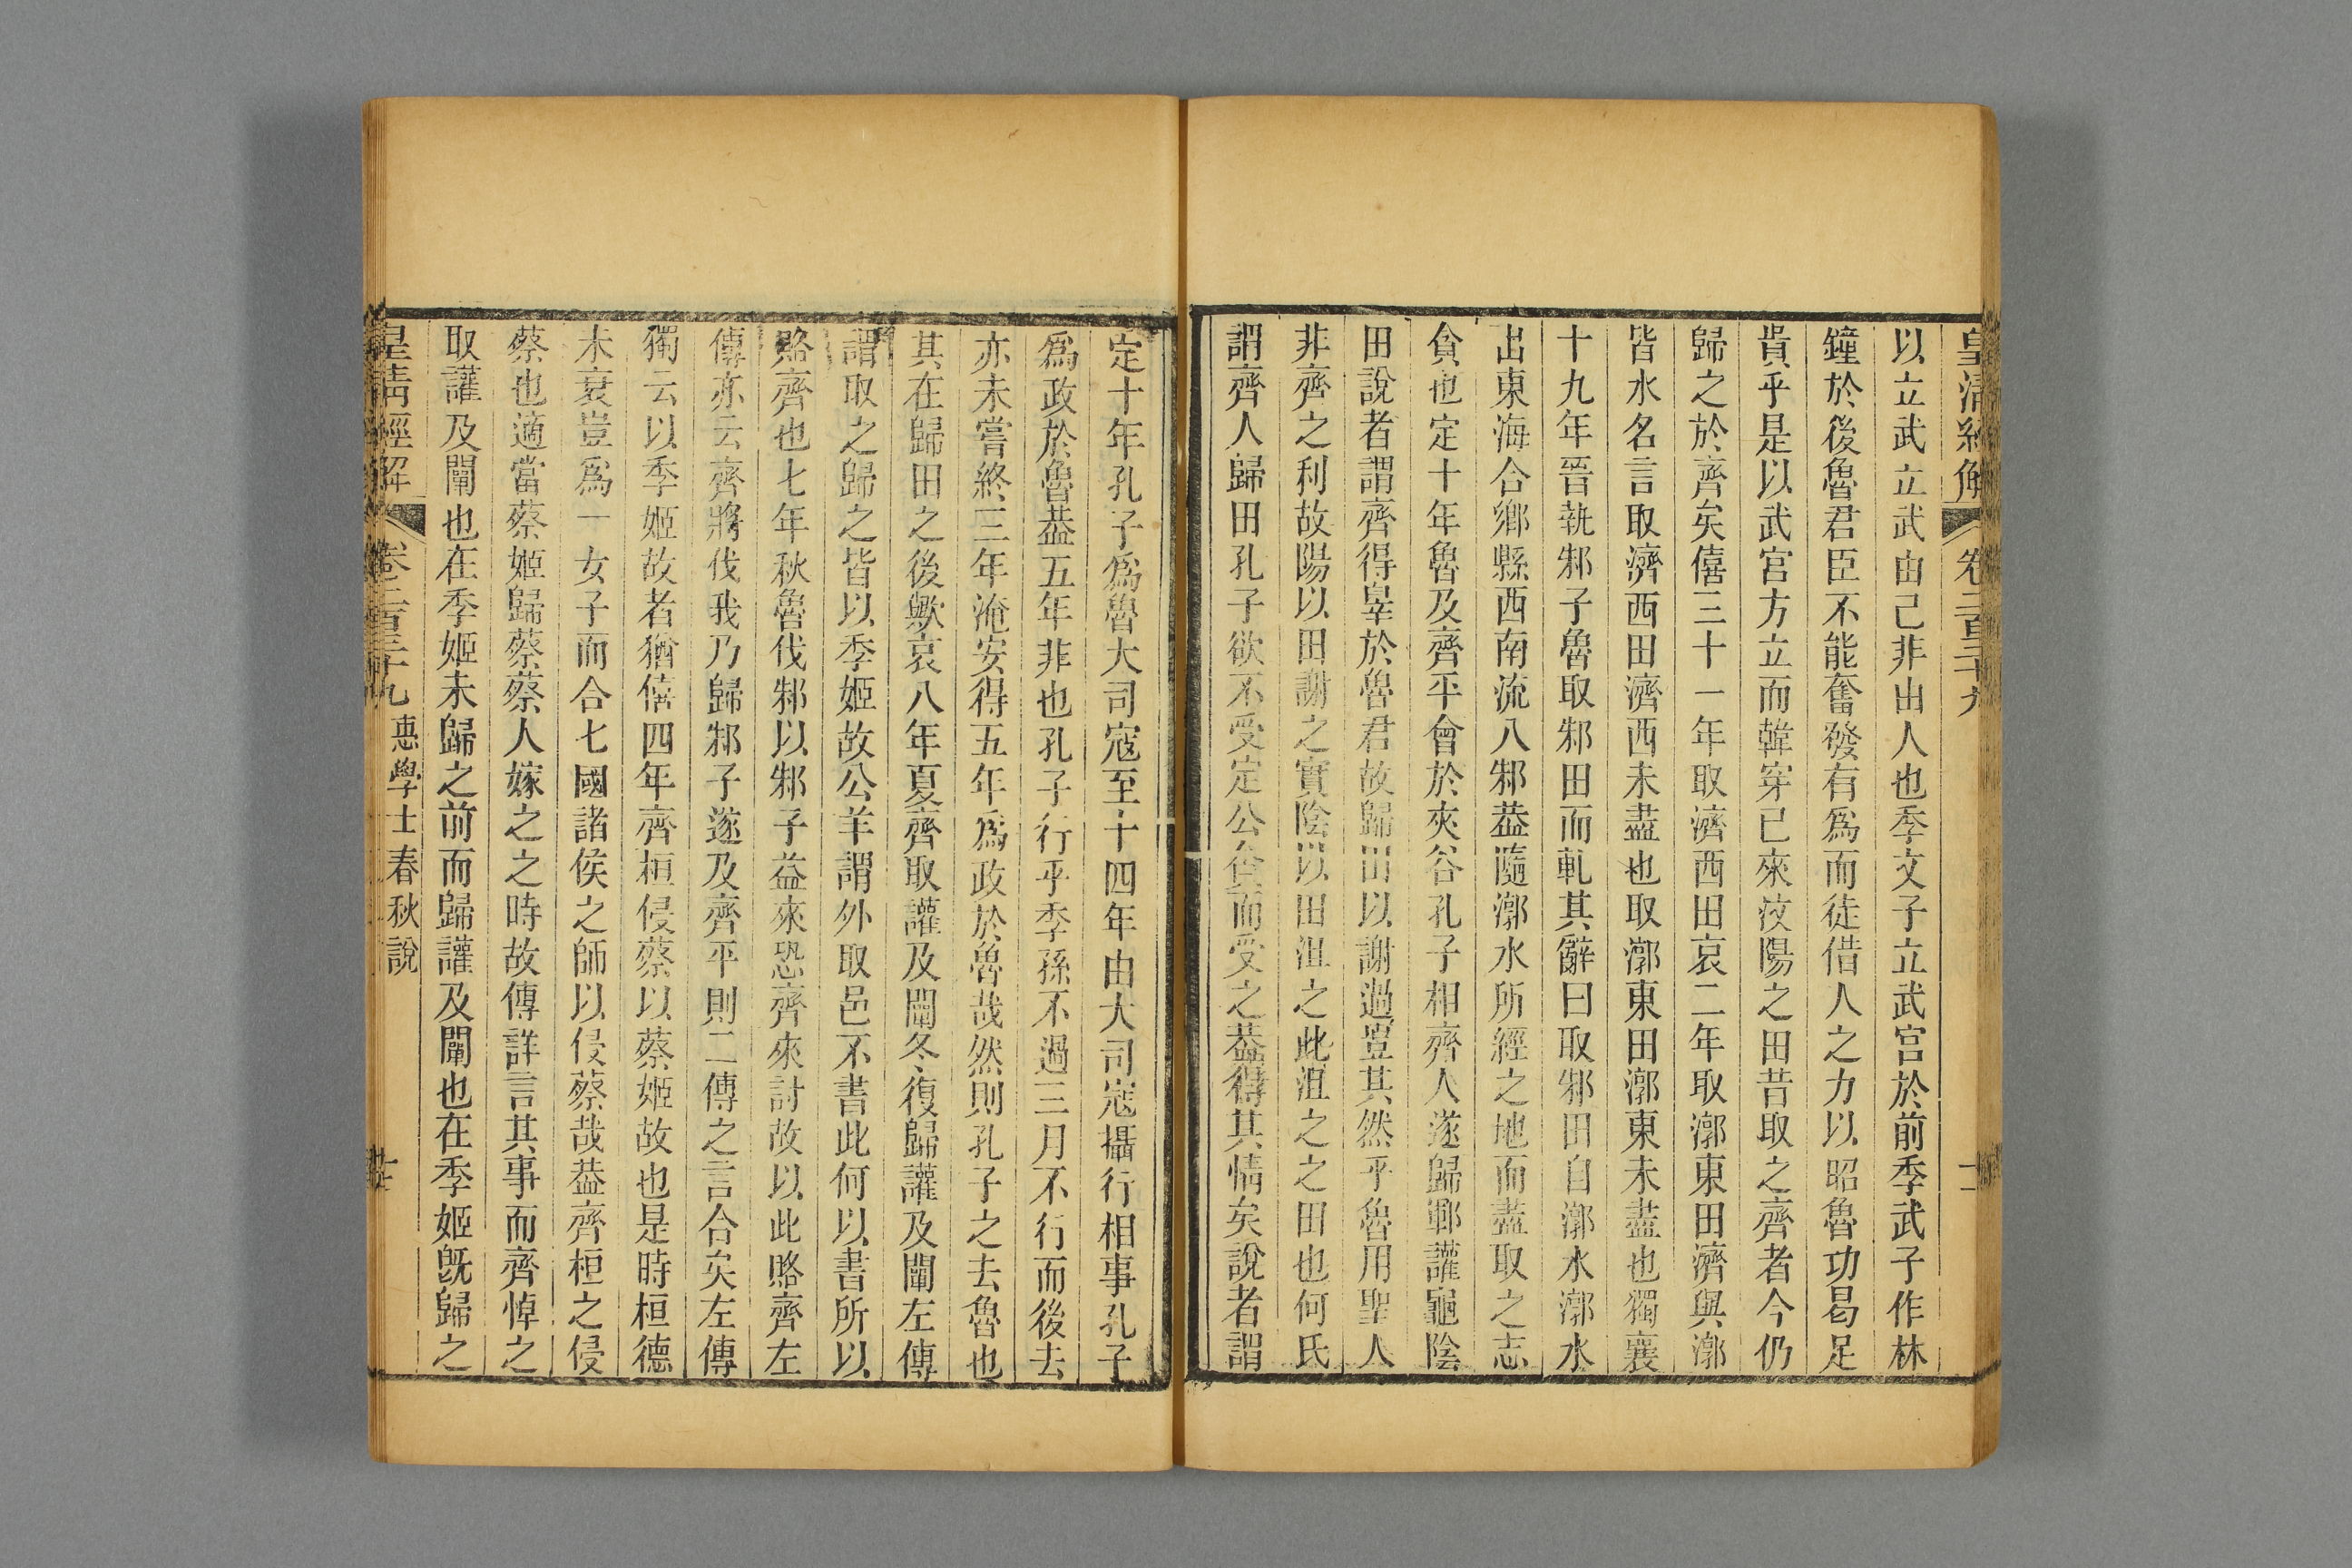 皇清經解 卷二百三十九 十一
以立武立武由己非出人也季文子立武宮於前季武子作林
鐘於後魯君臣不能奮發有爲而徒借人之力以昭魯功曷足
貴乎是以武宮方立而韓穿已來汶陽之田昔取之齊者今仍
歸之於齊矣僖三十一年取濟西田哀二年取漷東田濟與漷
皆水名言取濟西田濟西未盡也取漷東田漷東未盡也獨襄
十九年晉執邾子魯取邾田而軌其辭曰取邾田自漷水漷水
出東海合鄉縣西南流入邾葢隨漷水所經之地而盡取之志
貪也定十年魯及齊平會於夾谷孔子相齊人遂歸鄆讙龜陰
田說者謂齊得辠於魯君故歸田以謝過豈其然乎魯用聖人
非齊之利故陽以田謝之實陰以田沮之此沮之之田也何氏
謂齊人歸田孔子欲不受定公貪而受之葢得其情矣說者謂
定十年孔子爲魯大司寇至十四年由大司寇攝行相事孔子
爲政於魯葢五年非也孔子行乎季孫不過三月不行而後去
亦未嘗終三年淹安得五年爲政於魯哉然則孔子之去魯也
其在歸田之後歟哀八年夏齊取讙及闡冬復歸讙及闡左傳
謂取之歸之皆以季姬故公羊謂外取邑不書此何以書所以
賂齊也七年秋魯伐邾以邾子益來恐齊來討故以此賂齊左
傳亦云齊將伐我乃歸邾子遂及齊平則二傳之言合矣左傳
獨云以季姬故者猶僖四年齊桓侵蔡以蔡姬故也是時桓德
未衰豈爲一女子而合七國諸侯之師以侵蔡哉葢齊桓之侵
蔡也適當蔡姬歸蔡蔡人嫁之之時故傳詳言其事而齊悼之
取讙及闡也在季姬未歸之前而歸讙及闡也在季姬既歸之
皇清經解 卷二百三十九 惠學士春秋說